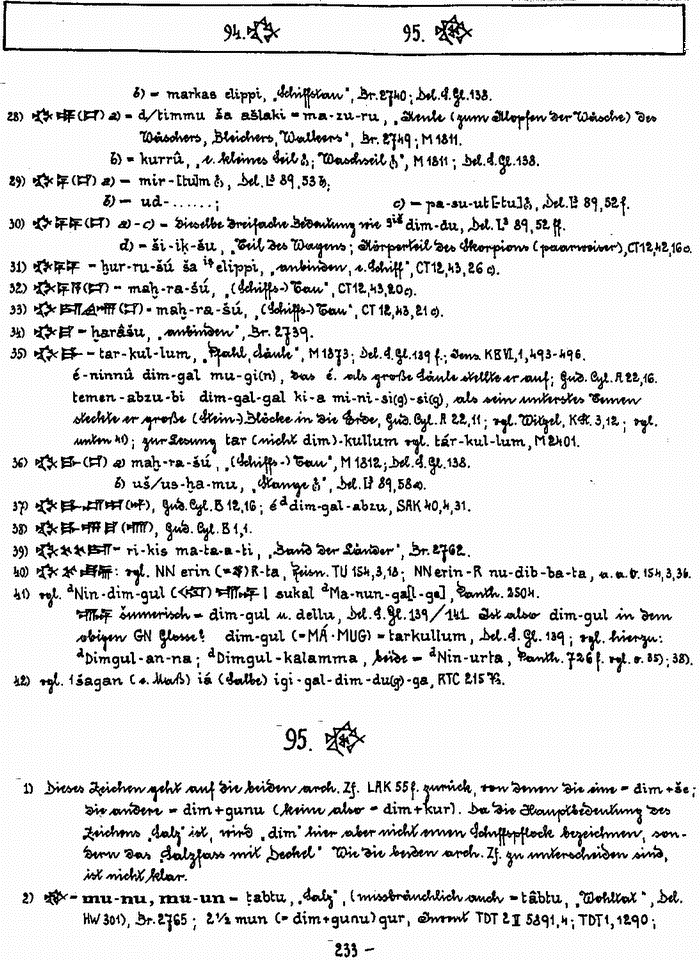 94. 95.
b) = markas elippi, „Schiffstau“, Br. 2740; Del. S. Gl. 138.
28) a) = d/timmu ša ašlaki = ma-zu-ru, „Keule (zum Klopfen der Wäsche) des
Wäschers, Bleichers, Walkers“, Br. 2749; M 1811.
b) = kurrû, M 1811; Del. S. Gl. 138.
29) a) = mir-[tu]m
b) = ud-......; c) = pa-su-ut[-tu]
30) a)-c) = dieselbe dreifache Bedeutung wie giš dim-du,
d) = ši-iḳ-šu, „Teil des Wagens; Körperteil des Skorpions (paarweise)“, CT 12, 42, 16 c.
31) = ḫur-ru-šú ša iṣ elippi, „anbinden, v. Schiff“, CT 12, 43, 26 c).
32) = maḫ-ra-šú, „(Schiffs-) Tau“, CT 12, 43, 20 c).
33) = maḫ-ra-šú, „(Schiffs-) Tau“, CT 12, 43, 21 c).
34) = ḫarâšu, „anbinden“, Br. 2739.
35) = tar-kul-lum, „Pfahl, Säule“, M 1873; Del. S. Gl. 139 f.; Jens. KB VI, 1, 493-496.
é-ninnû dim-gal mu-gi(n), das é. als große Säule stellte er auf; Gud. Cyl. A 22, 16.
temen-abzu-bi dim-gal-gal ki-a mi-ni-si(g)-si(g), als sein unterstes Temen
steckte er große (Stein-) Blöcke in die Erde, Gud. Cyl. A 22, 11; vgl. Witzel, 3, 12; vgl.
unten 41); zur Lesung tar (nicht dim)-kullum vgl. tár-kul-lum, M 2401.
36) a) maḫ-ra-šú, „(Schiffs-) Tau“, M 1812; Del. S. Gl. 138.
b) uš/us-ḫa-mu, „Stange“,
37) Gud. Cyl. B 12, 16; é d dim-gal-abzu, SAK 40, 4, 31.
38) Gud. Cyl. B 1, 1.
39) = ri-kis ma-ta-a-ti, „Band der Länder“, Br. 2762.
40) : vgl. NN erin R-ta, TU 154, 3, 18; NN erin-R nu-dib-ba-ta, a. a. O. 154, 3, 36.
41) vgl. dNin-dim-gul sukal dMa-nun-ga[l-ge], Panth. 2504.
šumerisch = dim-gul u. dellu, Del. S. Gl. 139/141. Ist also dim-gul in dem
obigen GN Glosse? dim-gul (= MÁ·MUG) = tarkullum, Del. S. Gl. 139; vgl. hierzu:
dDimgul-an-na; dDimgul-kalamma, beide = dNin-urta, Panth. 726 f. vgl. o. 35); 38).
42) vgl. 1 šagan (e. Maß) iá (Salbe) igi-gal-dim-du(g)-ga, RTC 215
95.
1) Dieses Zeichen geht auf die beiden arch. Zf. LAK 55 f. zurück, von denen die eine = dim+še;
die andere = dim+gunu (keine also = dim+kur). Da die Hauptbedeutung des
Zeichens „Salz“ ist, wird „dim“ hier aber nicht einen Schiffspflock bezeichnen, son-
dern das „Salzfass mit Deckel“ Wie die beiden arch. Zf. zu unterscheiden sind,
ist nicht klar.
2) = mu-nu, mu-un = ṭabtu, „Salz“, (missbräuchlich auch = ṭâbtu, „Wohltat“, Del.
HW 301), Br. 2765; 2½ mun (= dim+gunu) gur, Invent TDT 2 II 5391, 4; TDT 1, 1290;
233 -